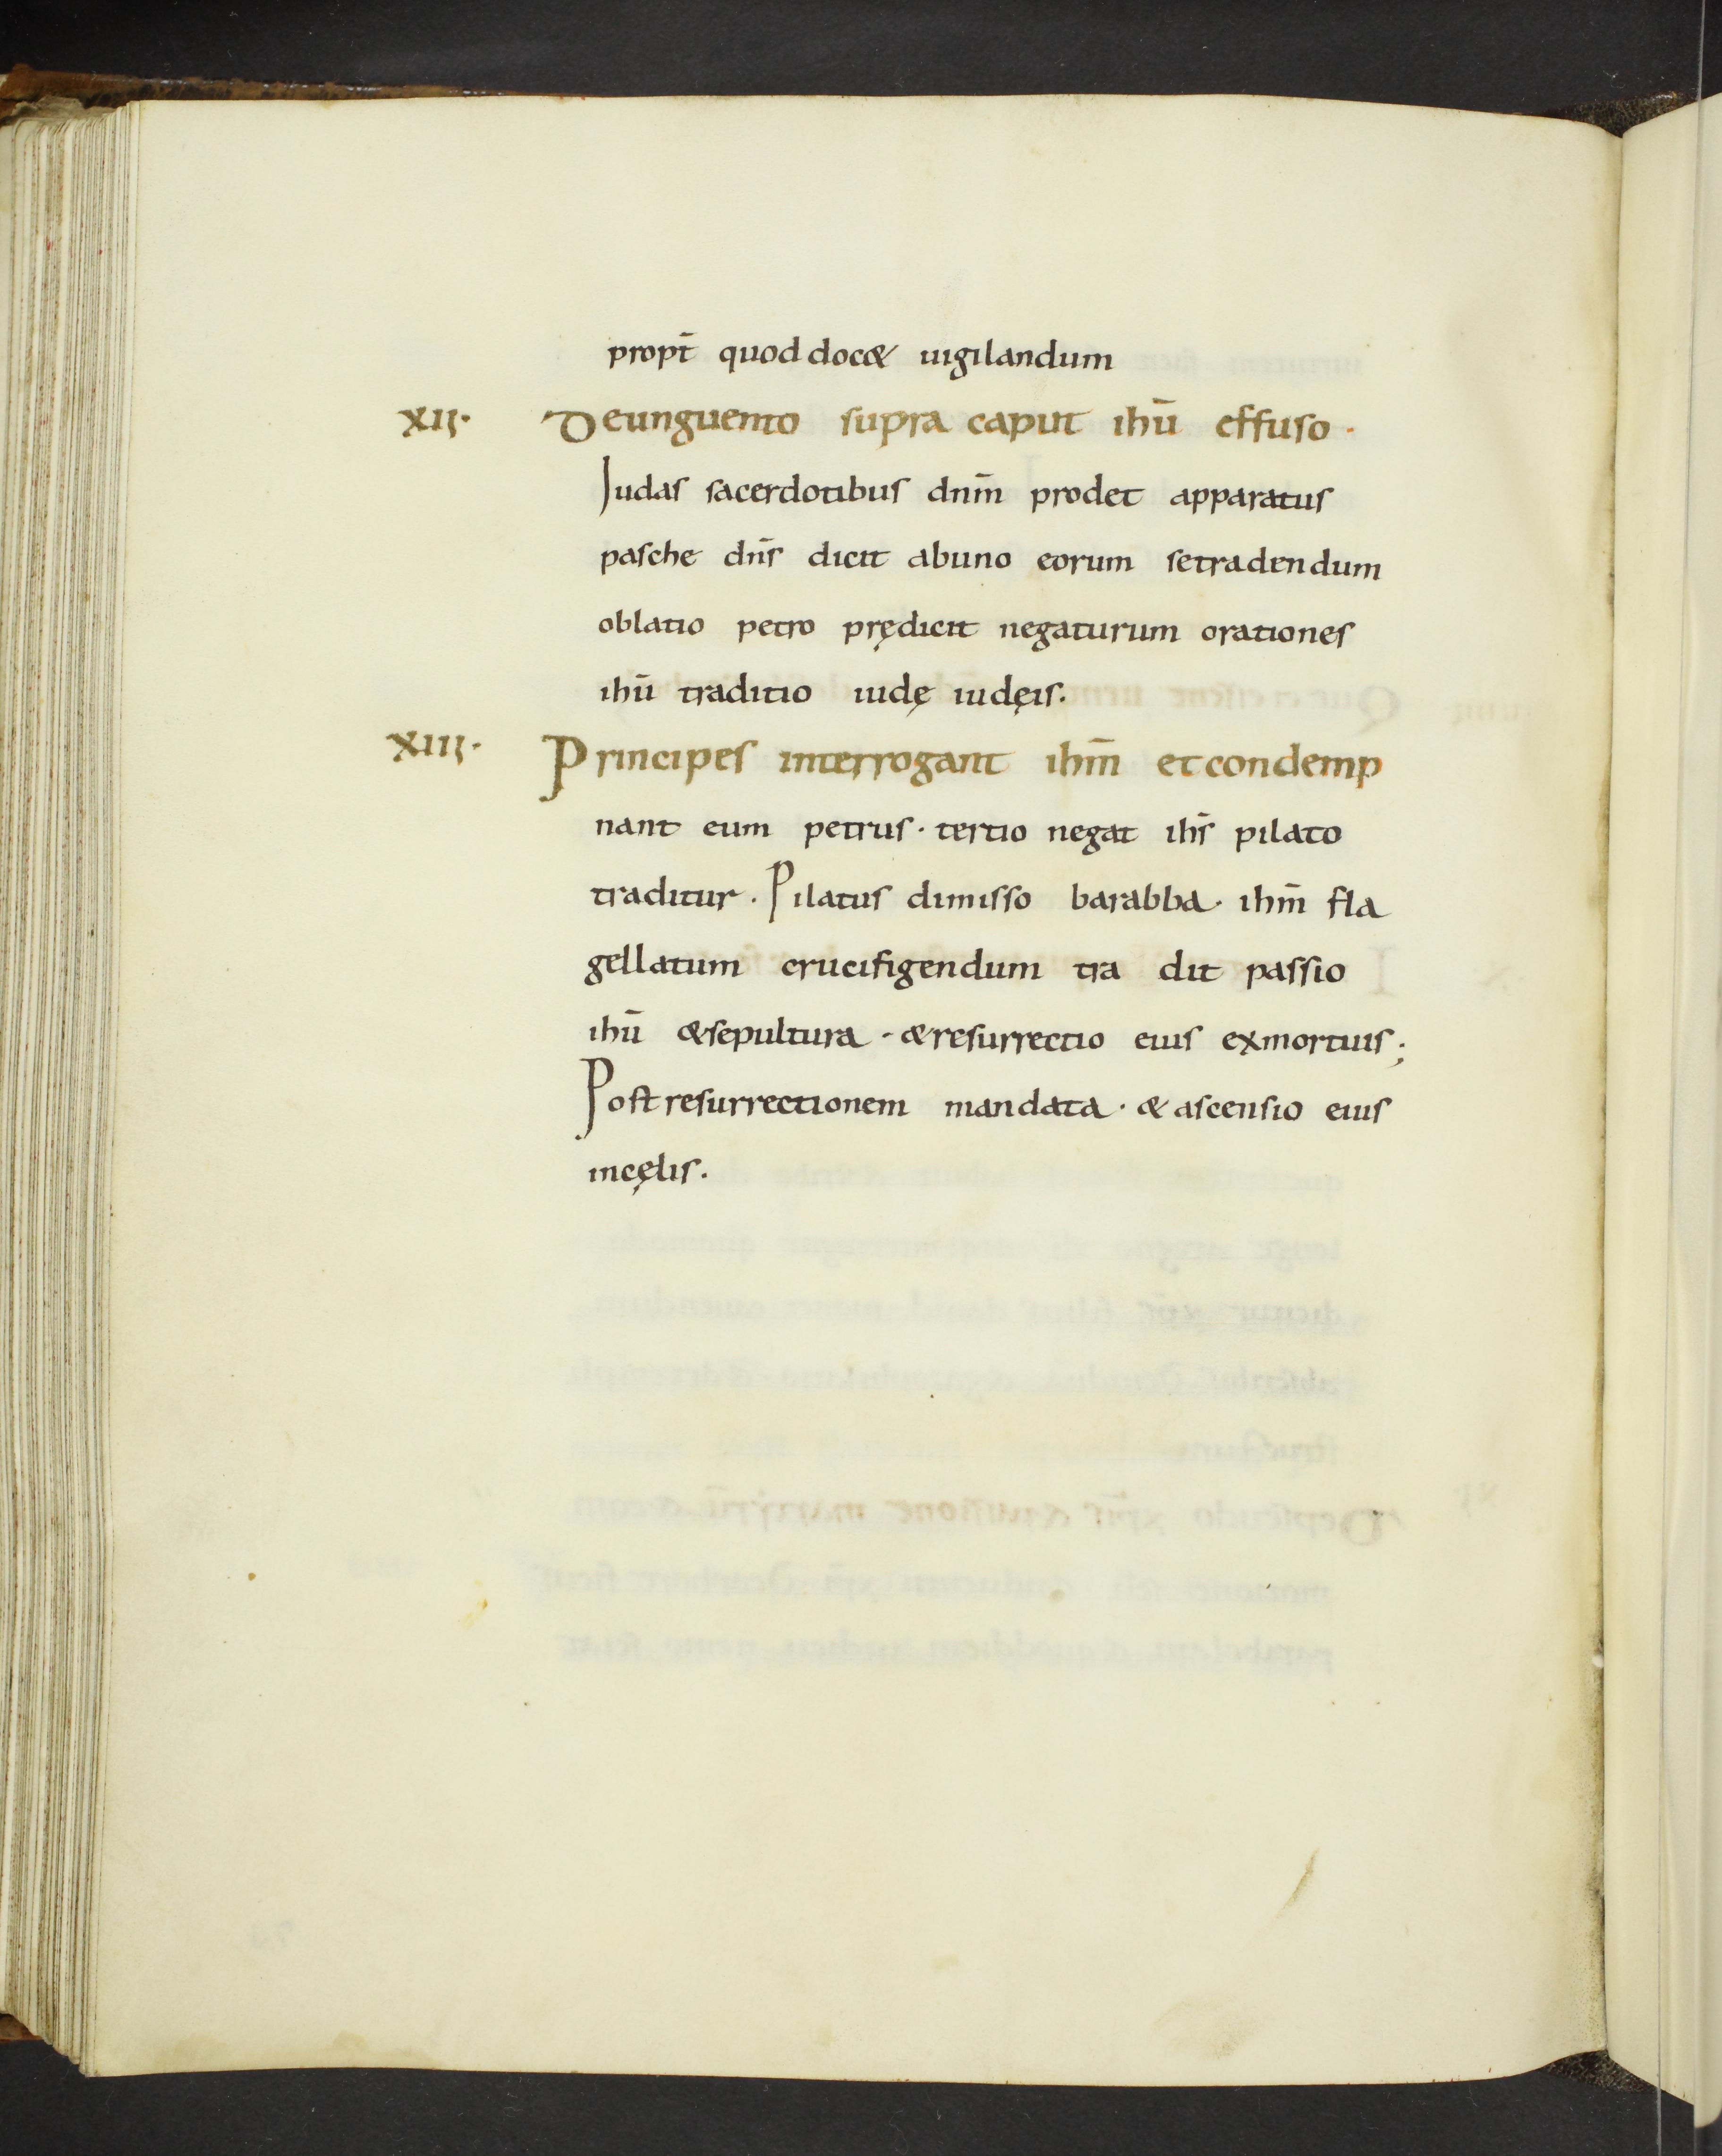 propt̄ quod doc& uigilandum
XII· De unguento supra caput ihū effuso·
Judas sacerdotibus dnm̄ prodet apparatus
pasche dn̄s dicit abuno eorum setradendum
oblatio petro prędicit negaturum orationes
ihū traditio iudę iudęis.
XIII· Principes interrogant ihm̄ etcondemp
nant eum petrus· tertio negat ihs̄ pilato
traditur. Pilatus dimisso barabba· ihm̄ fla
gellatum crucifigendum tra dit passio
ihū &sepultura· &resurrectio eius exmortuis;
Post resurrectionem mandata· & ascensio eius
incęlis.